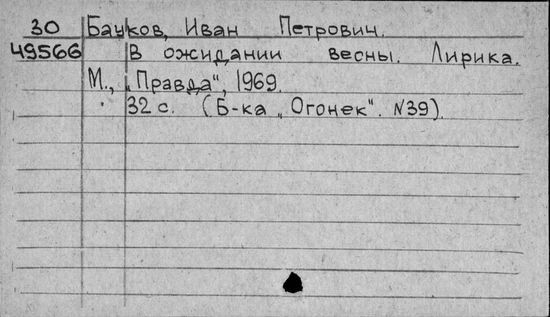 30 Бауков, Иван Петрович.
49566 В ожидании весны. Лирика.
М., „Правда“, 1969.
32 с. (Б-ка „Огонек“. N39).